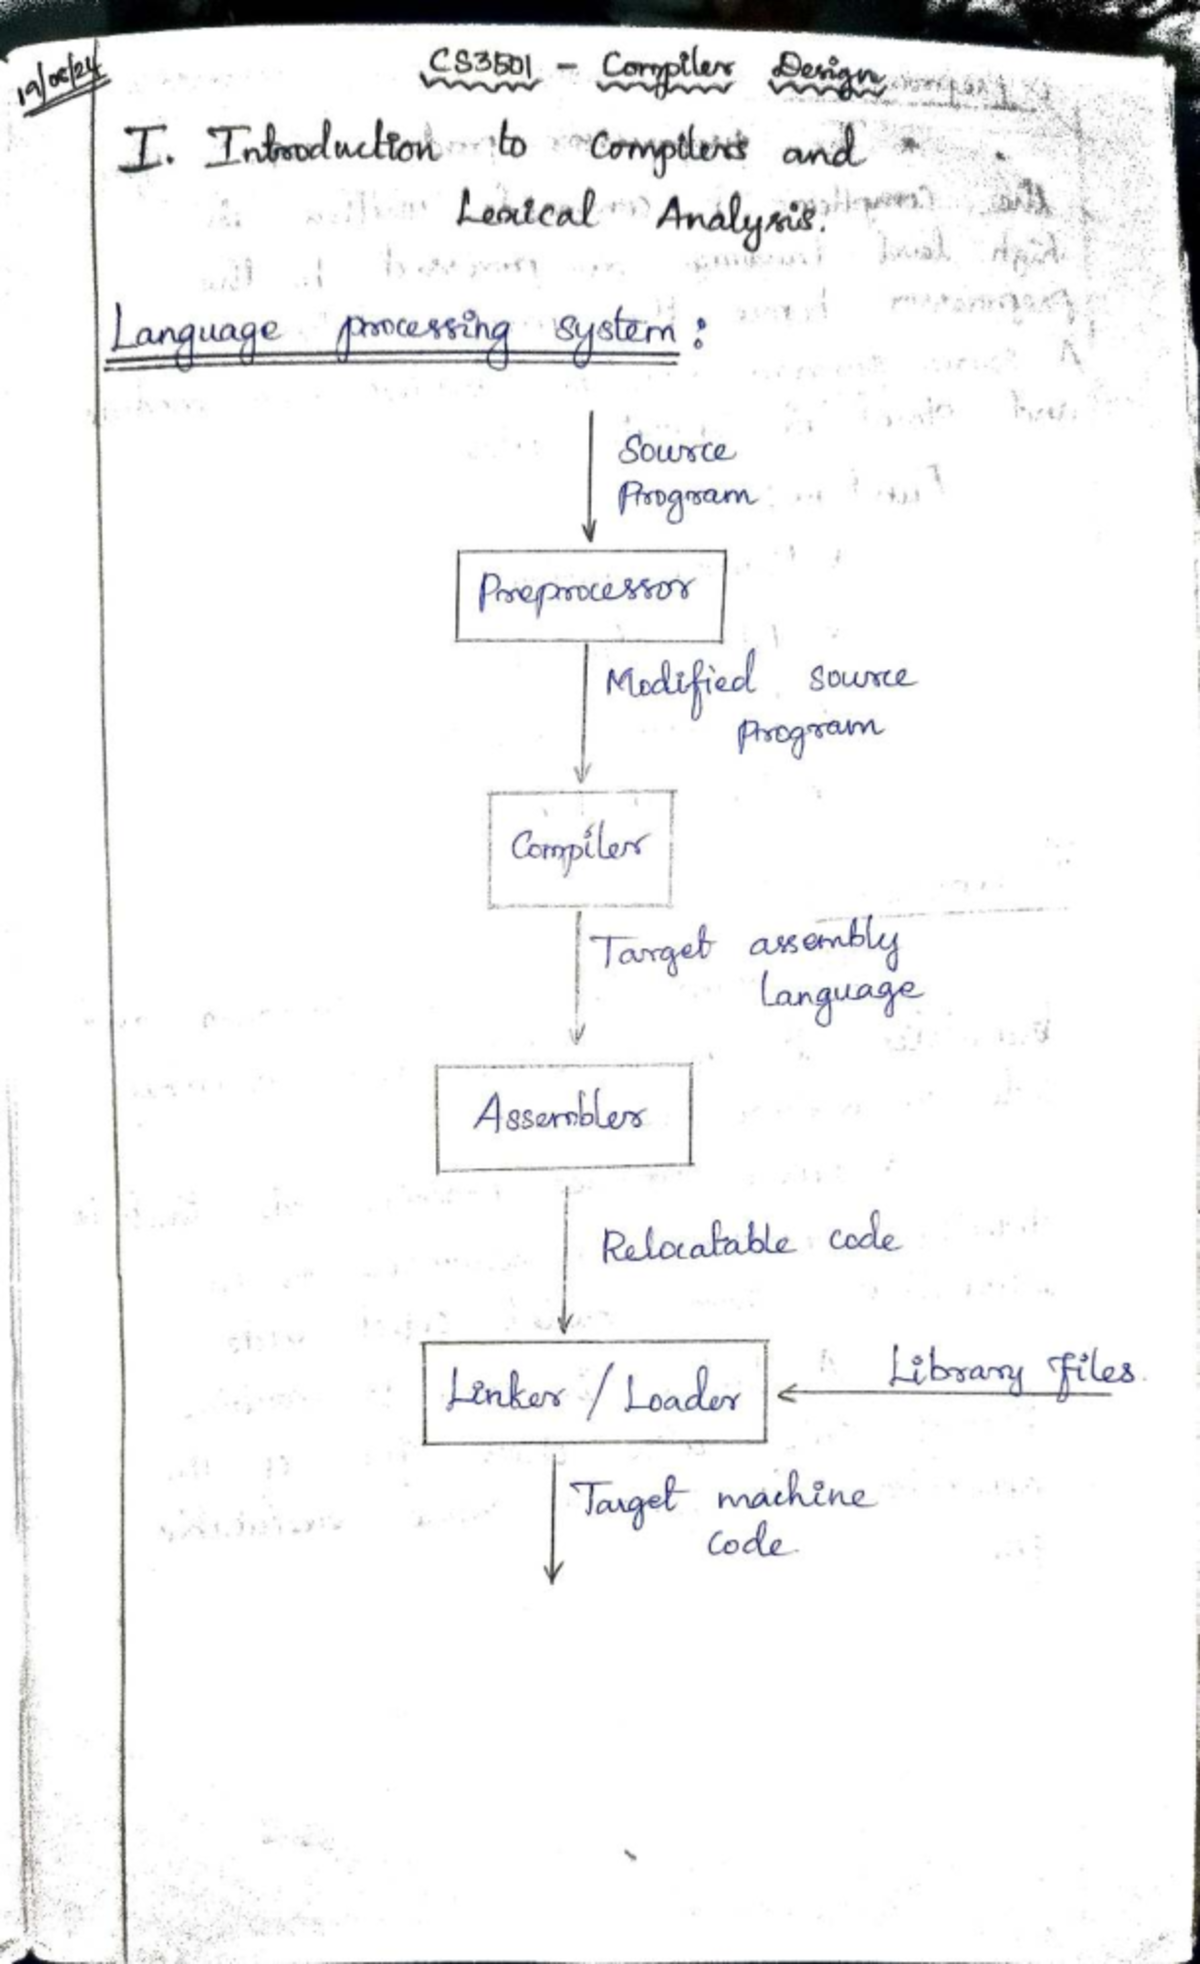 19/08/24
CS3501 - Compiler Design
I. Introduction to Compilers and
Lexical Analysis.
Language processing system:
Source
Program
Preprocessor
Modified source
program
Compiler
Target assembly
language
Assembler
Relocatable code
Linker / Loader
Library files
Target machine
code